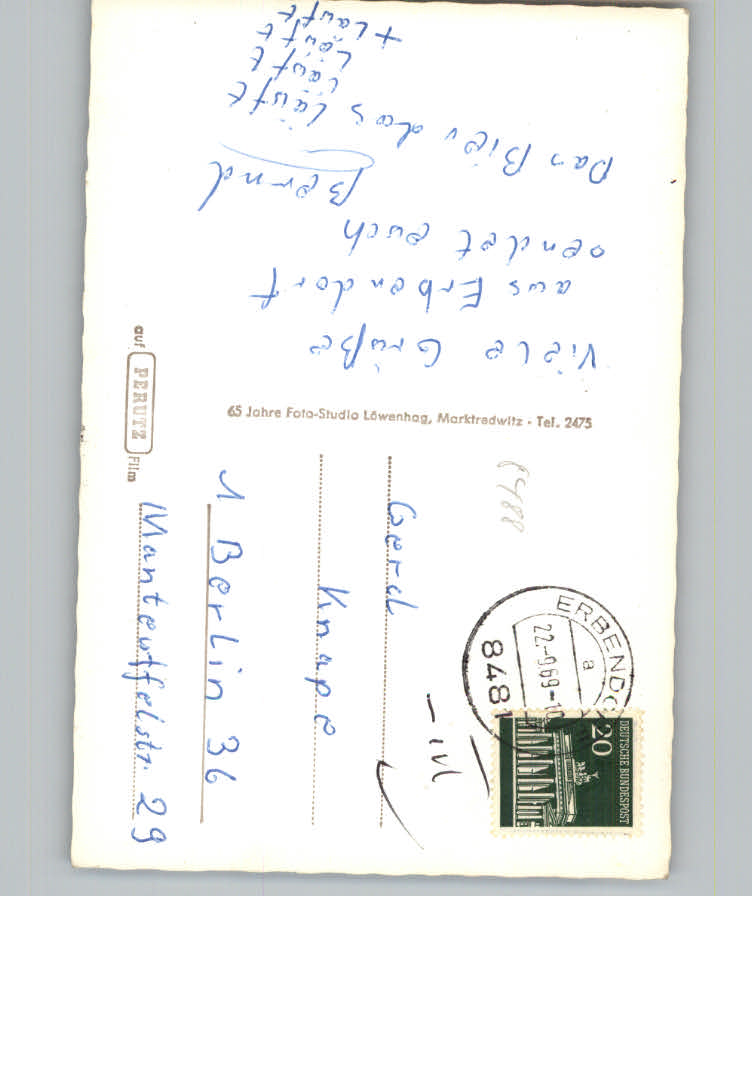 Viele Grüße
aus Erbendorf
sendet euch
Bernd
Das Bier das läuft
läuft
läuft
+ läuft
65 Jahre Foto-Studio Löwenhag, Marktredwitz - Tel. 2475
auf PERUTZ Film
8488
Gerd
Knape
1 Berlin 36
Manteuffelstr. 29
ERBENDO
a
22.-9.69-10
8481
20
DEUTSCHE BUNDESPOST